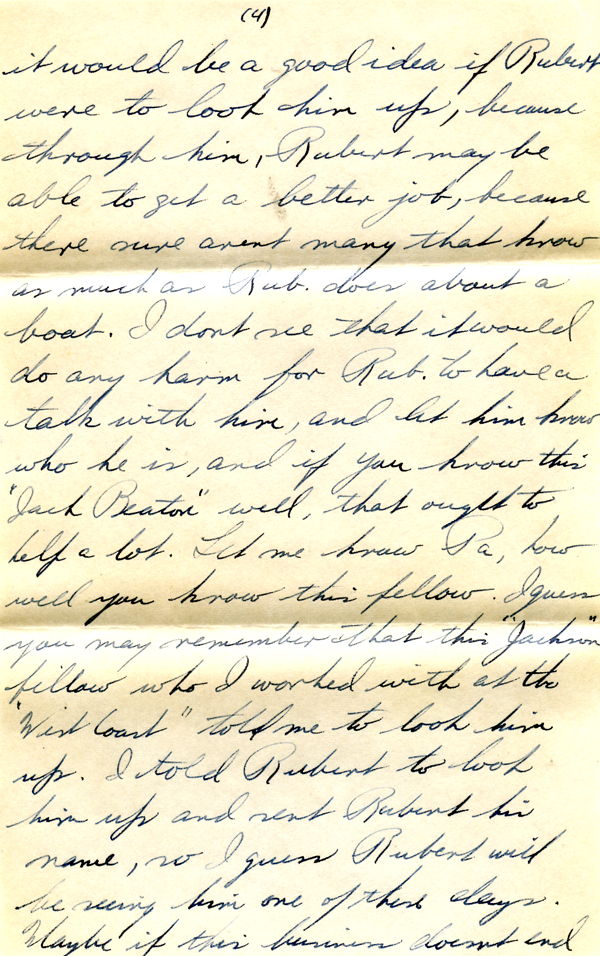 (4)
it would be a good idea if Rubert
were to look him up, because
through him, Rubert may be
able to get a better job, because
there sure arent many that know
as much as Rub. does about a
boat. I dont see that it would
do any harm for Rub. to have a
talk with him, and let him know
who he is, and if you know this
"Jack Beaton" well, that ought to
help a lot. Let me know Pa, how
well you know this fellow. I guess
you may remember that this "Jackson"
fellow who I worked with at the
"West Coast" told me to look him
up. I told Rubert to look
him up and sent Rubert his
name, so I guess Rubert will
be seeing him one of these days.
Maybe if this business doesnt end